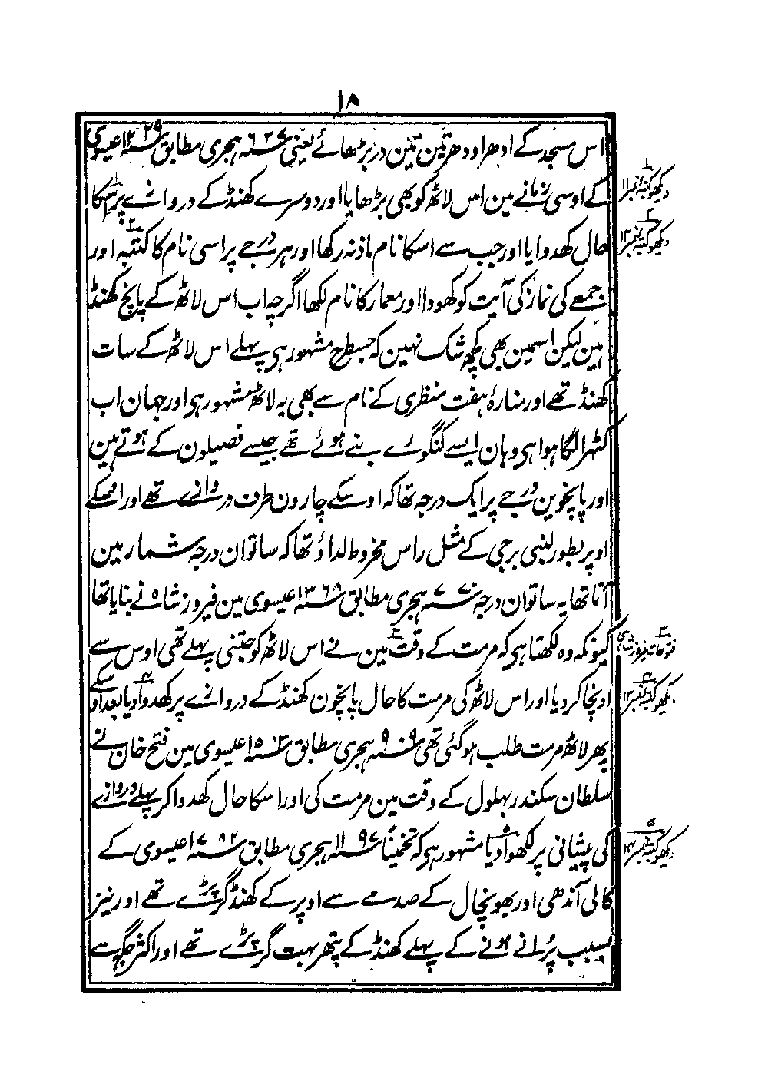 ۱۸
اس مسجد کے ادھر اودھر تین تین در بڑھائے یعنی ۶۲۷ سنہ ہجری مطابق ۱۲۲۹ سنہ عیسوی
کے اوسی زمانے مین اس لاٹھ کو بھی بڑھایا اور دوسرے کھنڈ کے دروازے پر اسکا
دیکھو کتبہ نمبر ۱۱
حال کھدوایا اور جب سے اسکا نام ماذنہ رکھا اور ہر درجے پر اسی نام کا کتبہ اور
دیکھو کتبہ نمبر ۱۲
جمعے کی نماز کی آیت کو کھودا اور معمار کا نام لکھا اگرچہ اب اس لاٹھ کے پانچ کھنڈ
ہین لیکن اسمین بھی کچھ شک نہین کہ جسطرح مشہور ہی پہلے اس لاٹھ کے سات
کھنڈ تھے اور منارہ ہفت منظری کے نام سے بھی یہ لاٹھ مشہور ہی اور جہان اب
کٹہرا لگا ہوا ہی وہان ایسے کنگورے بنے ہوئے تھے جیسے فصیلون کے ہوتے ہین
اور پانچوین درجے پر ایک درجہ تھا کہ اوسکے چارون طرف دروازے تھے اور اسکے
اوپر بطور لنبی برجی کے مثل راس مخروط لداؤ تھا کہ ساتوان درجہ شمار مین
آتا تھا یہ ساتوان درجہ ۷۷۰ سنہ ہجری مطابق ۱۳۶۸ سنہ عیسوی مین فیروز شاہ نے بنایا تھا
کیونکہ وہ لکھتا ہی کہ مرمت کے وقت مین نے اس لاٹھ کو جتنی پہلے تھی اوس سے
فتوحات فیروز شاہی
اونچا کر دیا اور اس لاٹھ کی مرمت کا حال پانچون کھنڈ کے دروازے پر کھدوا دیا بعد اوسکے
دیکھو کتبہ نمبر ۱۳
پھر لاٹھ مرمت طلب ہو گئی تھی ۹۰۹ سنہ ہجری مطابق ۱۵۰۳ سنہ عیسوی مین فتح خان نے
سلطان سکندر بہلول کے وقت مین مرمت کی اور اسکا حال کھدوا کر پہلے دروازے
کی پیشانی پر لکھوا دیا مشہور ہی کہ تخمیناً ۱۱۹۷ سنہ ہجری مطابق ۱۷۸۲ سنہ عیسوی کے
دیکھو کتبہ نمبر ۱۴
کالی آندھی اور بھونچال کے صدمے سے اوپر کے کھنڈ گر پڑے تھے اور نیز
بسبب پرانے ہونے کے پہلے کھنڈ کے پتھر بہت گر پڑے تھے اور اکثر جگہ سے